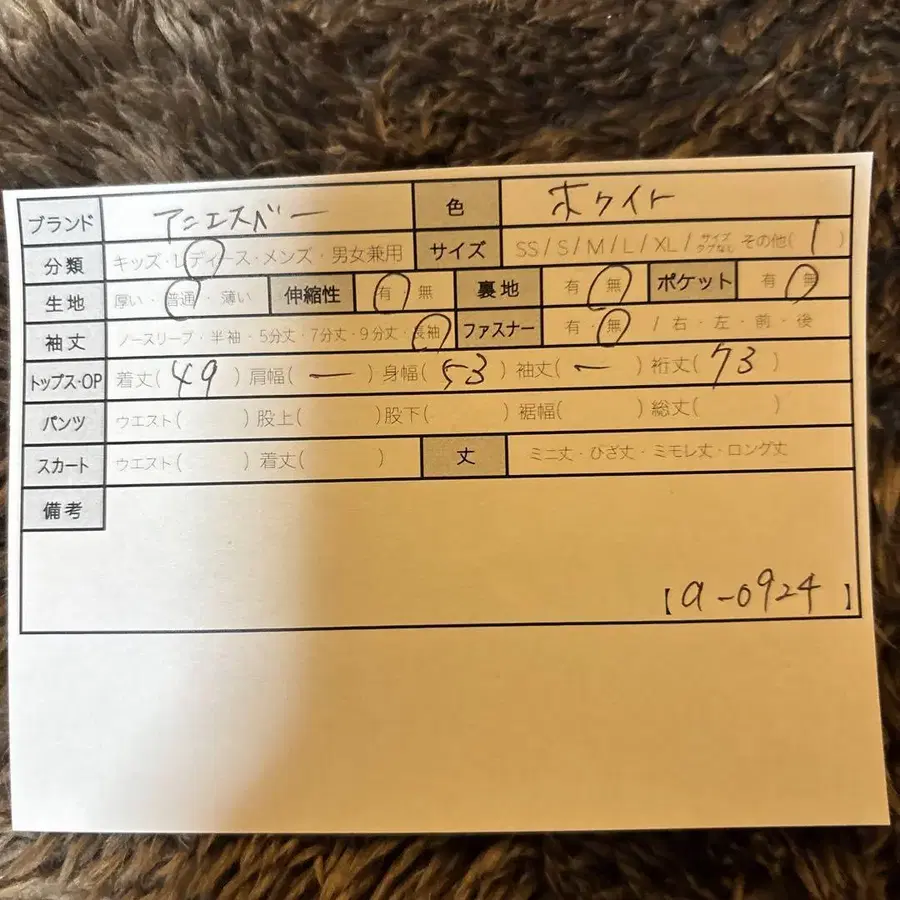 ブランド アニエスベー 色 ホワイト
分類 キッズ・レディース・メンズ・男女兼用 サイズ SS/S/M/L/XL/サイズタグなし その他(1)
生地 厚い・普通・薄い 伸縮性 有・無 裏地 有・無 ポケット 有・無
袖丈 ノースリーブ・半袖・5分丈・7分丈・9分丈・長袖 ファスナー 有・無 / 右・左・前・後
トップス・OP 着丈(49) 肩幅(ー) 身幅(53) 袖丈(ー) 裄丈(73)
パンツ ウエスト( ) 股上( ) 股下( ) 裾幅( ) 総丈( )
スカート ウエスト( ) 着丈( ) 丈 ミニ丈・ひざ丈・ミモレ丈・ロング丈
備考
【a-0924】